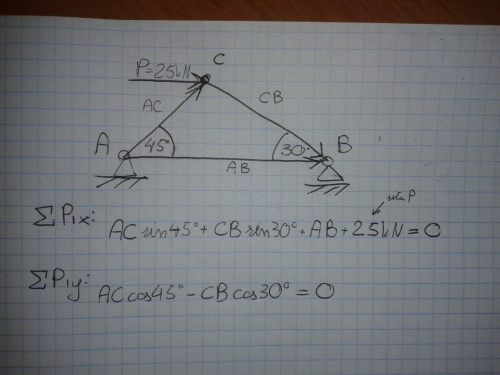 C
P=25kN
AC
CB
A
45°
30°
B
AB
P
ΣP1x: AC sin45° + CB sin30° + AB + 25kN = 0
ΣP1y: AC cos45° - CB cos30° = 0